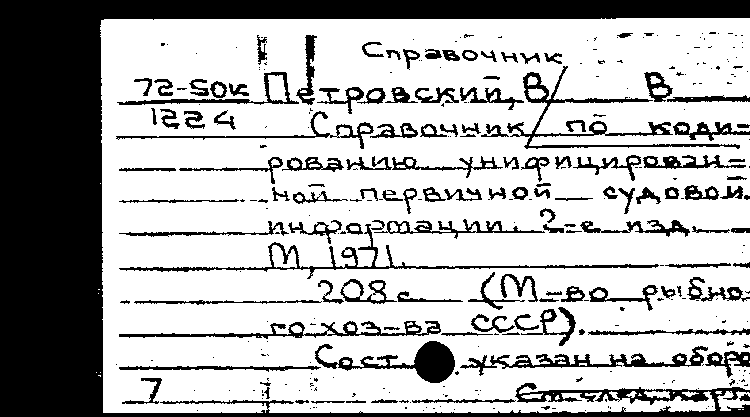 Справочник
72-50к Петровский, В В
1224 Справочник по коди=
рованию унифицирован=
ной первичной судовой
информации. 2-е изд.
М, 1971.
208 с (М-во рыбно
го хоз-ва СССР).
Сост указан на оборо
7 См след. карт.